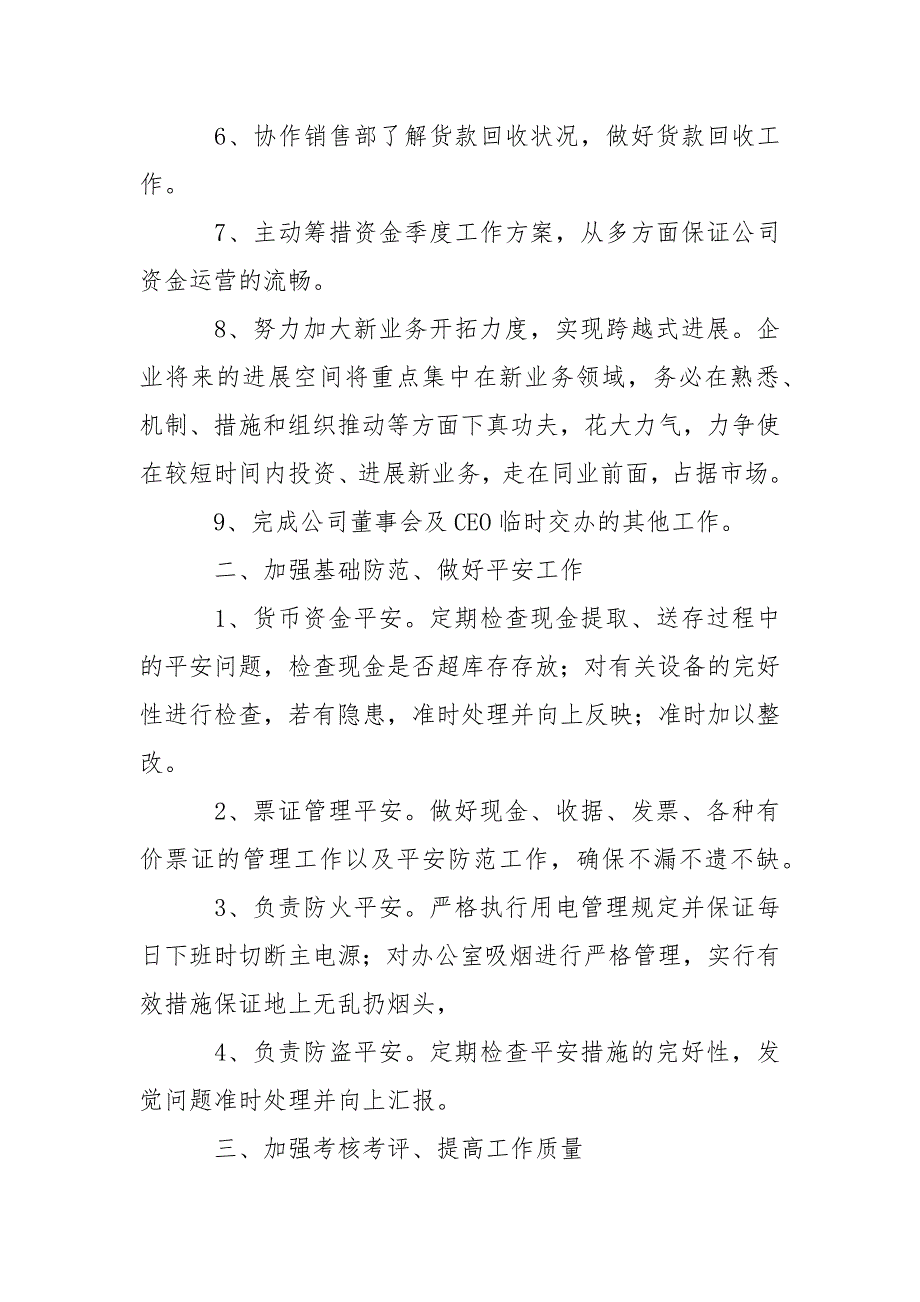 6、协作销售部了解货款回收状况，做好货款回收工
作。
7、主动筹措资金季度工作方案，从多方面保证公司
资金运营的流畅。
8、努力加大新业务开拓力度，实现跨越式进展。企
业将来的进展空间将重点集中在新业务领域，务必在熟悉、
机制、措施和组织推动等方面下真功夫，花大力气，力争使
在较短时间内投资、进展新业务，走在同业前面，占据市场。
9、完成公司董事会及 CEO 临时交办的其他工作。
二、加强基础防范、做好平安工作
1、货币资金平安。定期检查现金提取、送存过程中
的平安问题，检查现金是否超库存存放；对有关设备的完好
性进行检查，若有隐患，准时处理并向上反映；准时加以整
改。
2、票证管理平安。做好现金、收据、发票、各种有
价票证的管理工作以及平安防范工作，确保不漏不遗不缺。
3、负责防火平安。严格执行用电管理规定并保证每
日下班时切断主电源；对办公室吸烟进行严格管理，实行有
效措施保证地上无乱扔烟头，
4、负责防盗平安。定期检查平安措施的完好性，发
觉问题准时处理并向上汇报。
三、加强考核考评、提高工作质量